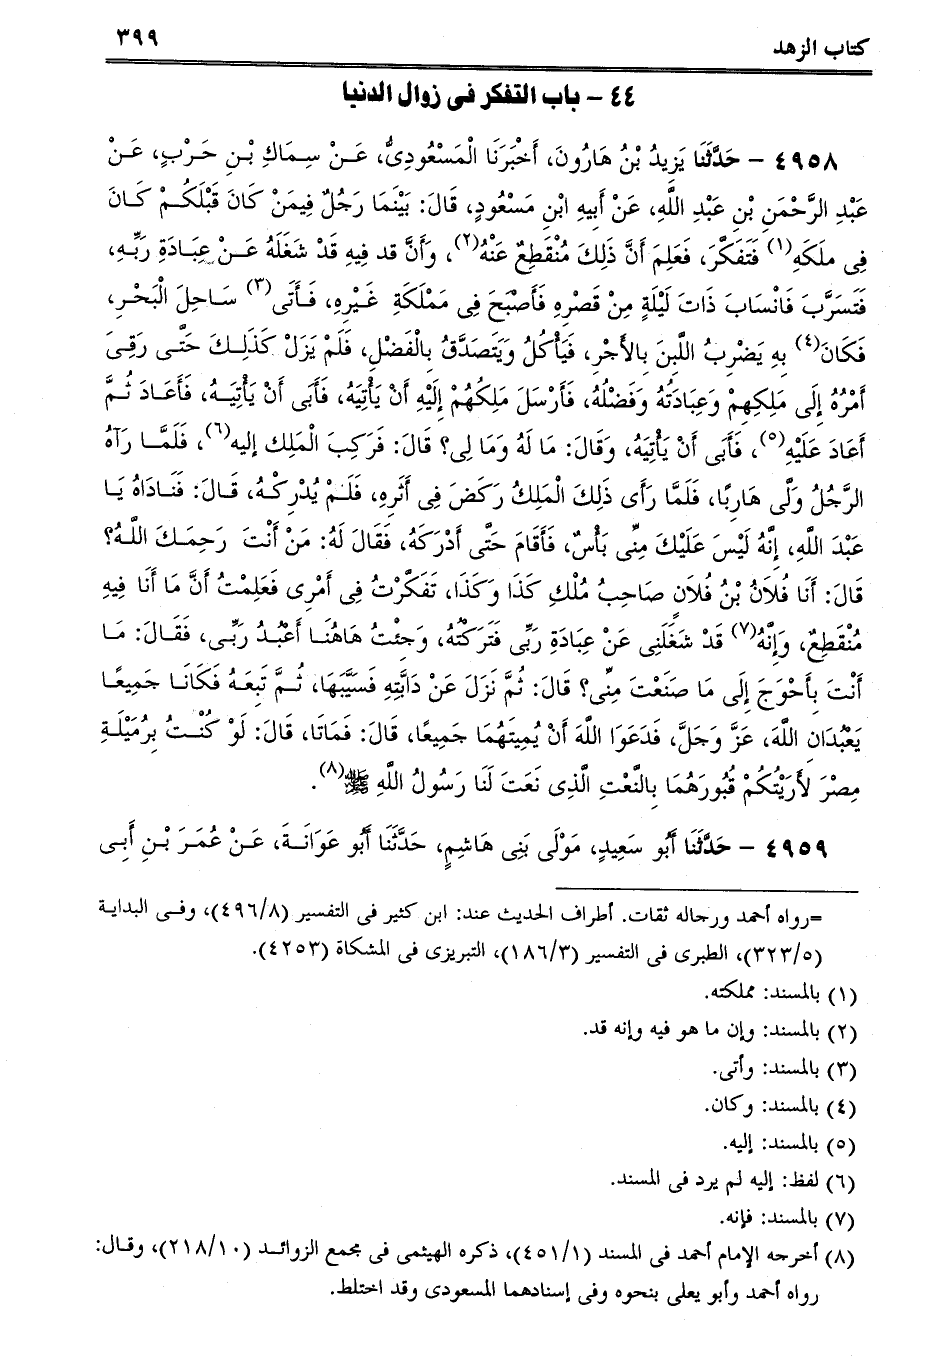 كتاب الزهد ٣٩٩
٤٤ - باب التفكر فى زوال الدنيا
٤٩٥٨ - حَدَّثَنَا يَزِيدُ بْنُ هَارُونَ، أَخْبَرَنَا الْمَسْعُودِىُّ، عَنْ سِمَاكِ بْنِ حَرْبٍ، عَنْ
عَبْدِ الرَّحْمَنِ بْنِ عَبْدِ اللَّهِ، عَنْ أَبِيهِ ابْنِ مَسْعُودٍ، قَالَ: بَيْنَمَا رَجُلٌ فِيمَنْ كَانَ قَبْلَكُمْ كَانَ
فِى مَلكَهِ(١) فَتَفَكَّرَ، فَعَلِمَ أَنَّ ذَلِكَ مُنْقَطِعٌ عَنْهُ(٢)، وَأَنَّ قد فِيهِ قَدْ شَغَلَهُ عَنْ عِبَادَةِ رَبِّهِ،
فَتَسَرَّبَ فَانْسَابَ ذَاتَ لَيْلَةٍ مِنْ قَصْرِهِ فَأَصْبَحَ فِى مَمْلَكَةِ غَيْرِهِ، فَأَتَى(٣) سَاحِلَ الْبَحْرِ،
فَكَانَ(٤) بِهِ يَضْرِبُ اللَّبِنَ بِالأَجْرِ، فَيَأْكُلُ وَيَتَصَدَّقُ بِالْفَضْلِ، فَلَمْ يَزَلْ كَذَلِكَ حَتَّى رَقِىَ
أَمْرُهُ إِلَى مَلِكِهِمْ وَعِبَادَتُهُ وَفَضْلُهُ، فَأَرْسَلَ مَلِكُهُمْ إِلَيْهِ أَنْ يَأْتِيَهُ، فَأَبَى أَنْ يَأْتِيَهُ، فَأَعَادَ ثُمَّ
أَعَادَ عَلَيْهِ(٥)، فَأَبَى أَنْ يَأْتِيَهُ، وَقَالَ: مَا لَهُ وَمَا لِى؟ قَالَ: فَرَكِبَ الْمَلِكَ إليه(٦)، فَلَمَّا رَآهُ
الرَّجُلُ وَلَّى هَارِبًا، فَلَمَّا رَأَى ذَلِكَ الْمَلِكُ رَكَضَ فِى أَثَرِهِ، فَلَمْ يُدْرِكْهُ، قَالَ: فَنَادَاهُ يَا
عَبْدَ اللَّهِ، إِنَّهُ لَيْسَ عَلَيْكَ مِنِّى بَأْسٌ، فَأَقَامَ حَتَّى أَدْرَكَهُ، فَقَالَ لَهُ: مَنْ أَنْتَ رَحِمَكَ اللَّهُ؟
قَالَ: أَنَا فُلاَنُ بْنُ فُلاَنٍ صَاحِبُ مُلْكِ كَذَا وَكَذَا، تَفَكَّرْتُ فِى أَمْرِى فَعَلِمْتُ أَنَّ مَا أَنَا فِيهِ
مُنْقَطِعٌ، وَإِنَّهُ(٧) قَدْ شَغَلَنِى عَنْ عِبَادَةِ رَبِّى فَتَرَكْتُهُ، وَجِئْتُ هَاهُنَا أَعْبُدُ رَبِّى، فَقَالَ: مَا
أَنْتَ بِأَحْوَجَ إِلَى مَا صَنَعْتَ مِنِّى؟ قَالَ: ثُمَّ نَزَلَ عَنْ دَابَّتِهِ فَسَيَّبَهَا، ثُمَّ تَبِعَهُ فَكَانَا جَمِيعًا
يَعْبُدَانِ اللَّهَ، عَزَّ وَجَلَّ، فَدَعَوَا اللَّهَ أَنْ يُمِيتَهُمَا جَمِيعًا، قَالَ: فَمَاتَا، قَالَ: لَوْ كُنْتُ بِرُمَيْلَةِ
مِصْرَ لأَرَيْتُكُمْ قُبُورَهُمَا بِالنَّعْتِ الَّذِى نَعَتَ لَنَا رَسُولُ اللَّهِ ﷺ(٨).
٤٩٥٩ - حَدَّثَنَا أَبُو سَعِيدٍ، مَوْلَى بَنِى هَاشِمٍ، حَدَّثَنَا أَبُو عَوَانَةَ، عَنْ عُمَرَ بْنِ أَبِى
=رواه أحمد ورجاله ثقات. أطراف الحديث عند: ابن كثير فى التفسير (٤٩٦/٨)، وفى البداية
(٣٢٣/٥)، الطبرى فى التفسير (١٨٦/٣)، التبريزى فى المشكاة (٤٢٥٣).
(١) بالمسند: مملكته.
(٢) بالمسند: وإن ما هو فيه وإنه قد.
(٣) بالمسند: وأتى.
(٤) بالمسند: وكان.
(٥) بالمسند: إليه.
(٦) لفظ: إليه لم يرد فى المسند.
(٧) بالمسند: فإنه.
(٨) أخرجه الإمام أحمد فى المسند (٤٥١/١)، ذكره الهيثمى فى مجمع الزوائد (٢١٨/١٠)، وقال:
رواه أحمد وأبو يعلى بنحوه وفى إسنادهما المسعودى وقد اختلط.